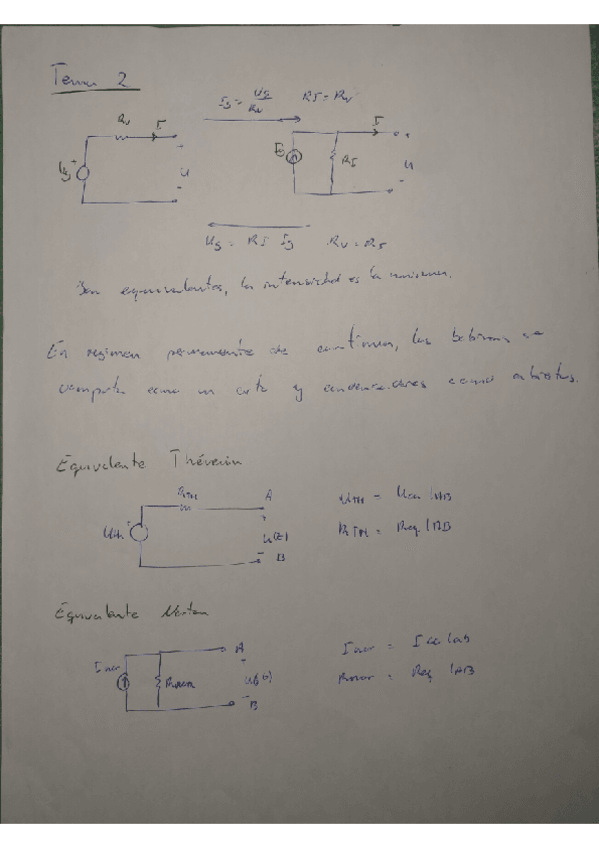 Tema 2
Ig = Ug/Rv RI = Rv
Rv I
Ug + u -
Ig RI I + u -
Ug = RI Ig Rv = RI
Son equivalentes, la intensidad es la misma.
En regimen permanente de continua, las bobinas se
comporta como un corto y condensadores como abiertos.
Equivalente Thévenin
RTH A
Uth + u(t) - B
UTH = Uca |AB
RTH = Req |AB
Equivalente Norton
Inor Rnor A - B
Inor = Icc |AB
Rnor = Req |AB